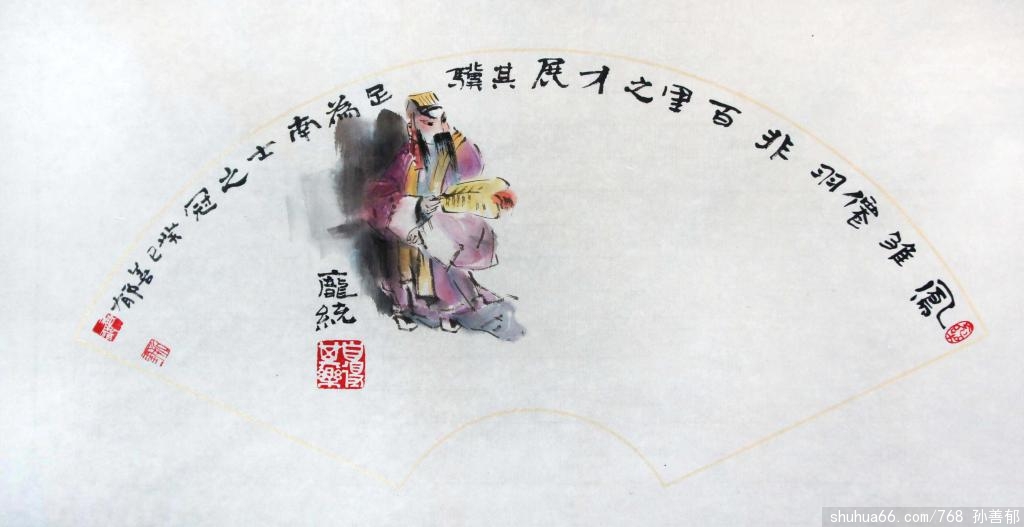 鳳雏僊羽非百里之才展其驥足為南士之冠癸巳善郁
龐統
shuhua66.com/768 孙善郁